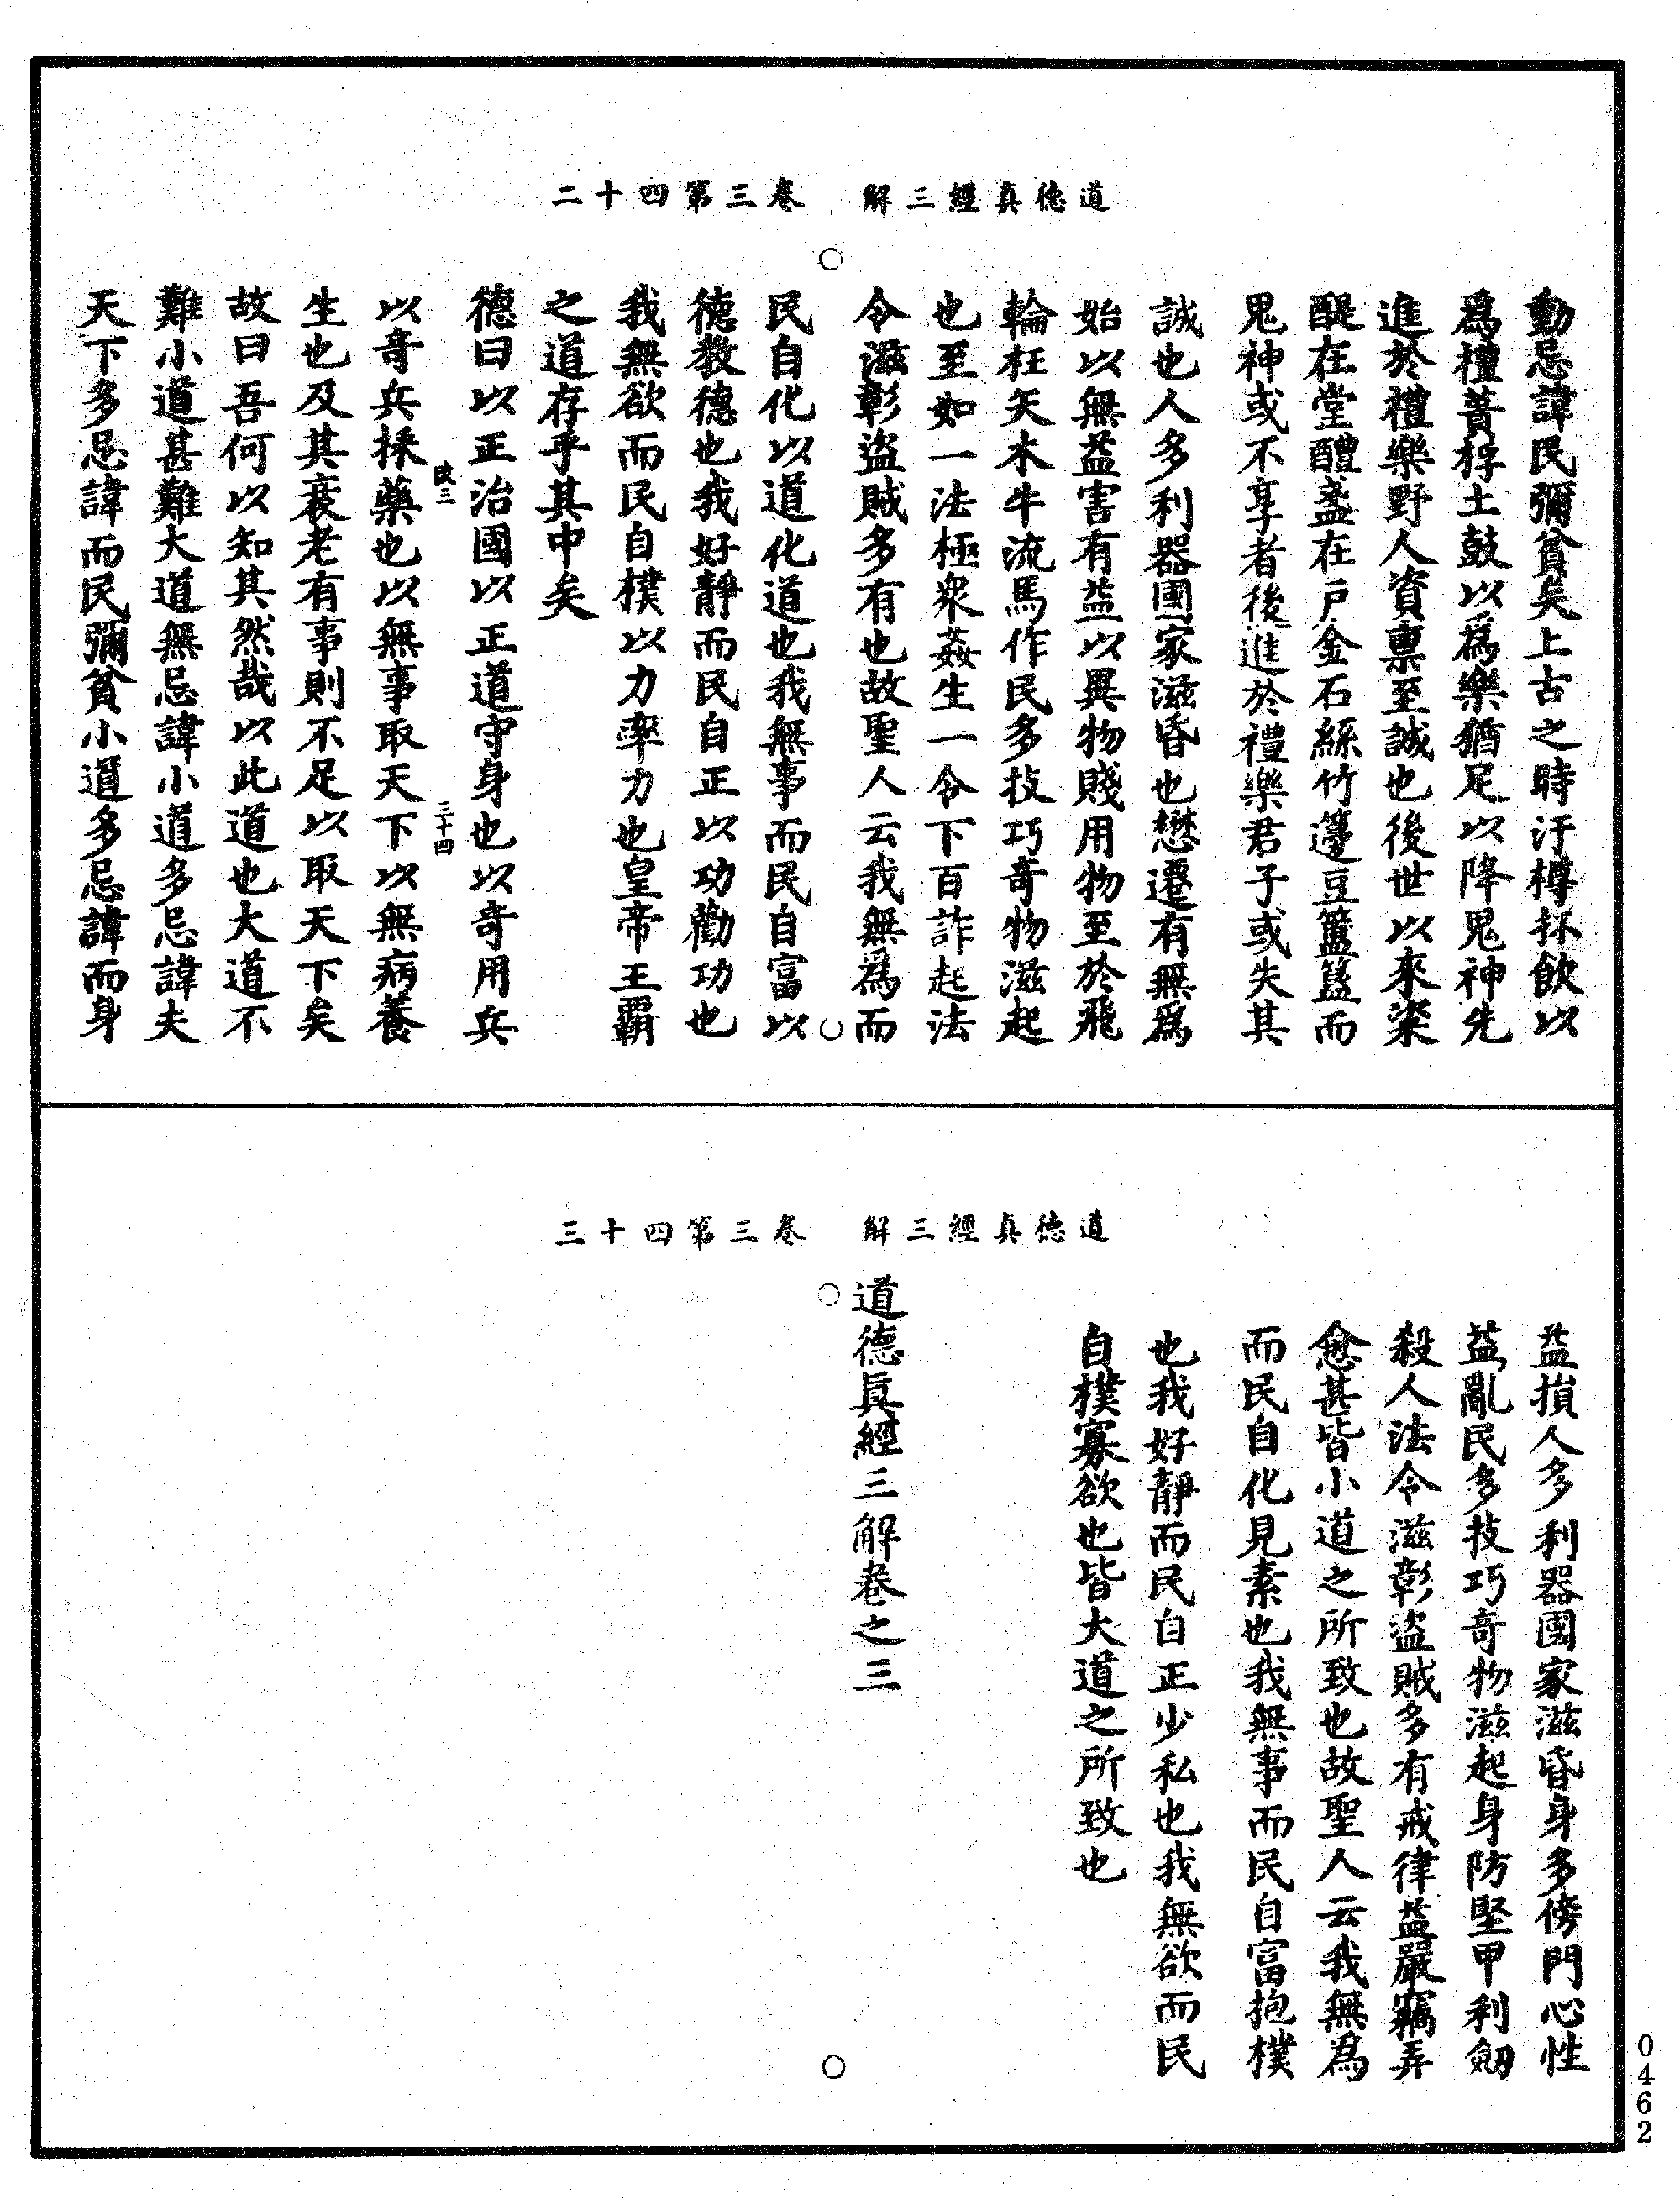 道德真經三解　卷三第四十二
動忌諱民彌貧矣上古之時汙樽抔飲以
爲禮蕢桴土鼓以爲樂猶足以降鬼神先
進於禮樂野人資禀至誠也後世以來粢
醍在堂醴盞在戶金石絲竹籩豆簠簋而
鬼神或不享者後進於禮樂君子或失其
誠也人多利器國家滋昏也懋遷有無爲
始以無益害有益以異物賤用物至於飛
輪枉矢木牛流馬作民多技巧奇物滋起
也至如一法極衆姦生一令下百詐起法
令滋彰盜賊多有也故聖人云我無爲而
民自化以道化道也我無事而民自富以
德教德也我好靜而民自正以功勸功也
我無欲而民自樸以力率力也皇帝王霸
之道存乎其中矣
德曰以正治國以正道守身也以奇用兵
三十四
以奇兵採藥也以無事取天下以無病養
生也及其衰老有事則不足以取天下矣
故曰吾何以知其然哉以此道也大道不
難小道甚難大道無忌諱小道多忌諱夫
天下多忌諱而民彌貧小道多忌諱而身
道德真經三解　卷三第四十三
益損人多利器國家滋昏身多傍門心性
益亂民多技巧奇物滋起身防堅甲利劒
殺人法令滋彰盜賊多有戒律益嚴竊弄
愈甚皆小道之所致也故聖人云我無爲
而民自化見素也我無事而民自富抱樸
也我好靜而民自正少私也我無欲而民
自樸寡欲也皆大道之所致也
道德眞經三解卷之三
0462